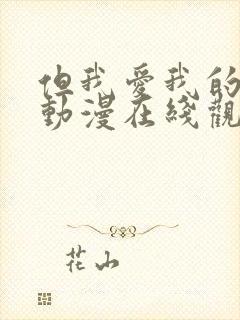 但我爱我的
動漫在綫觀
花山